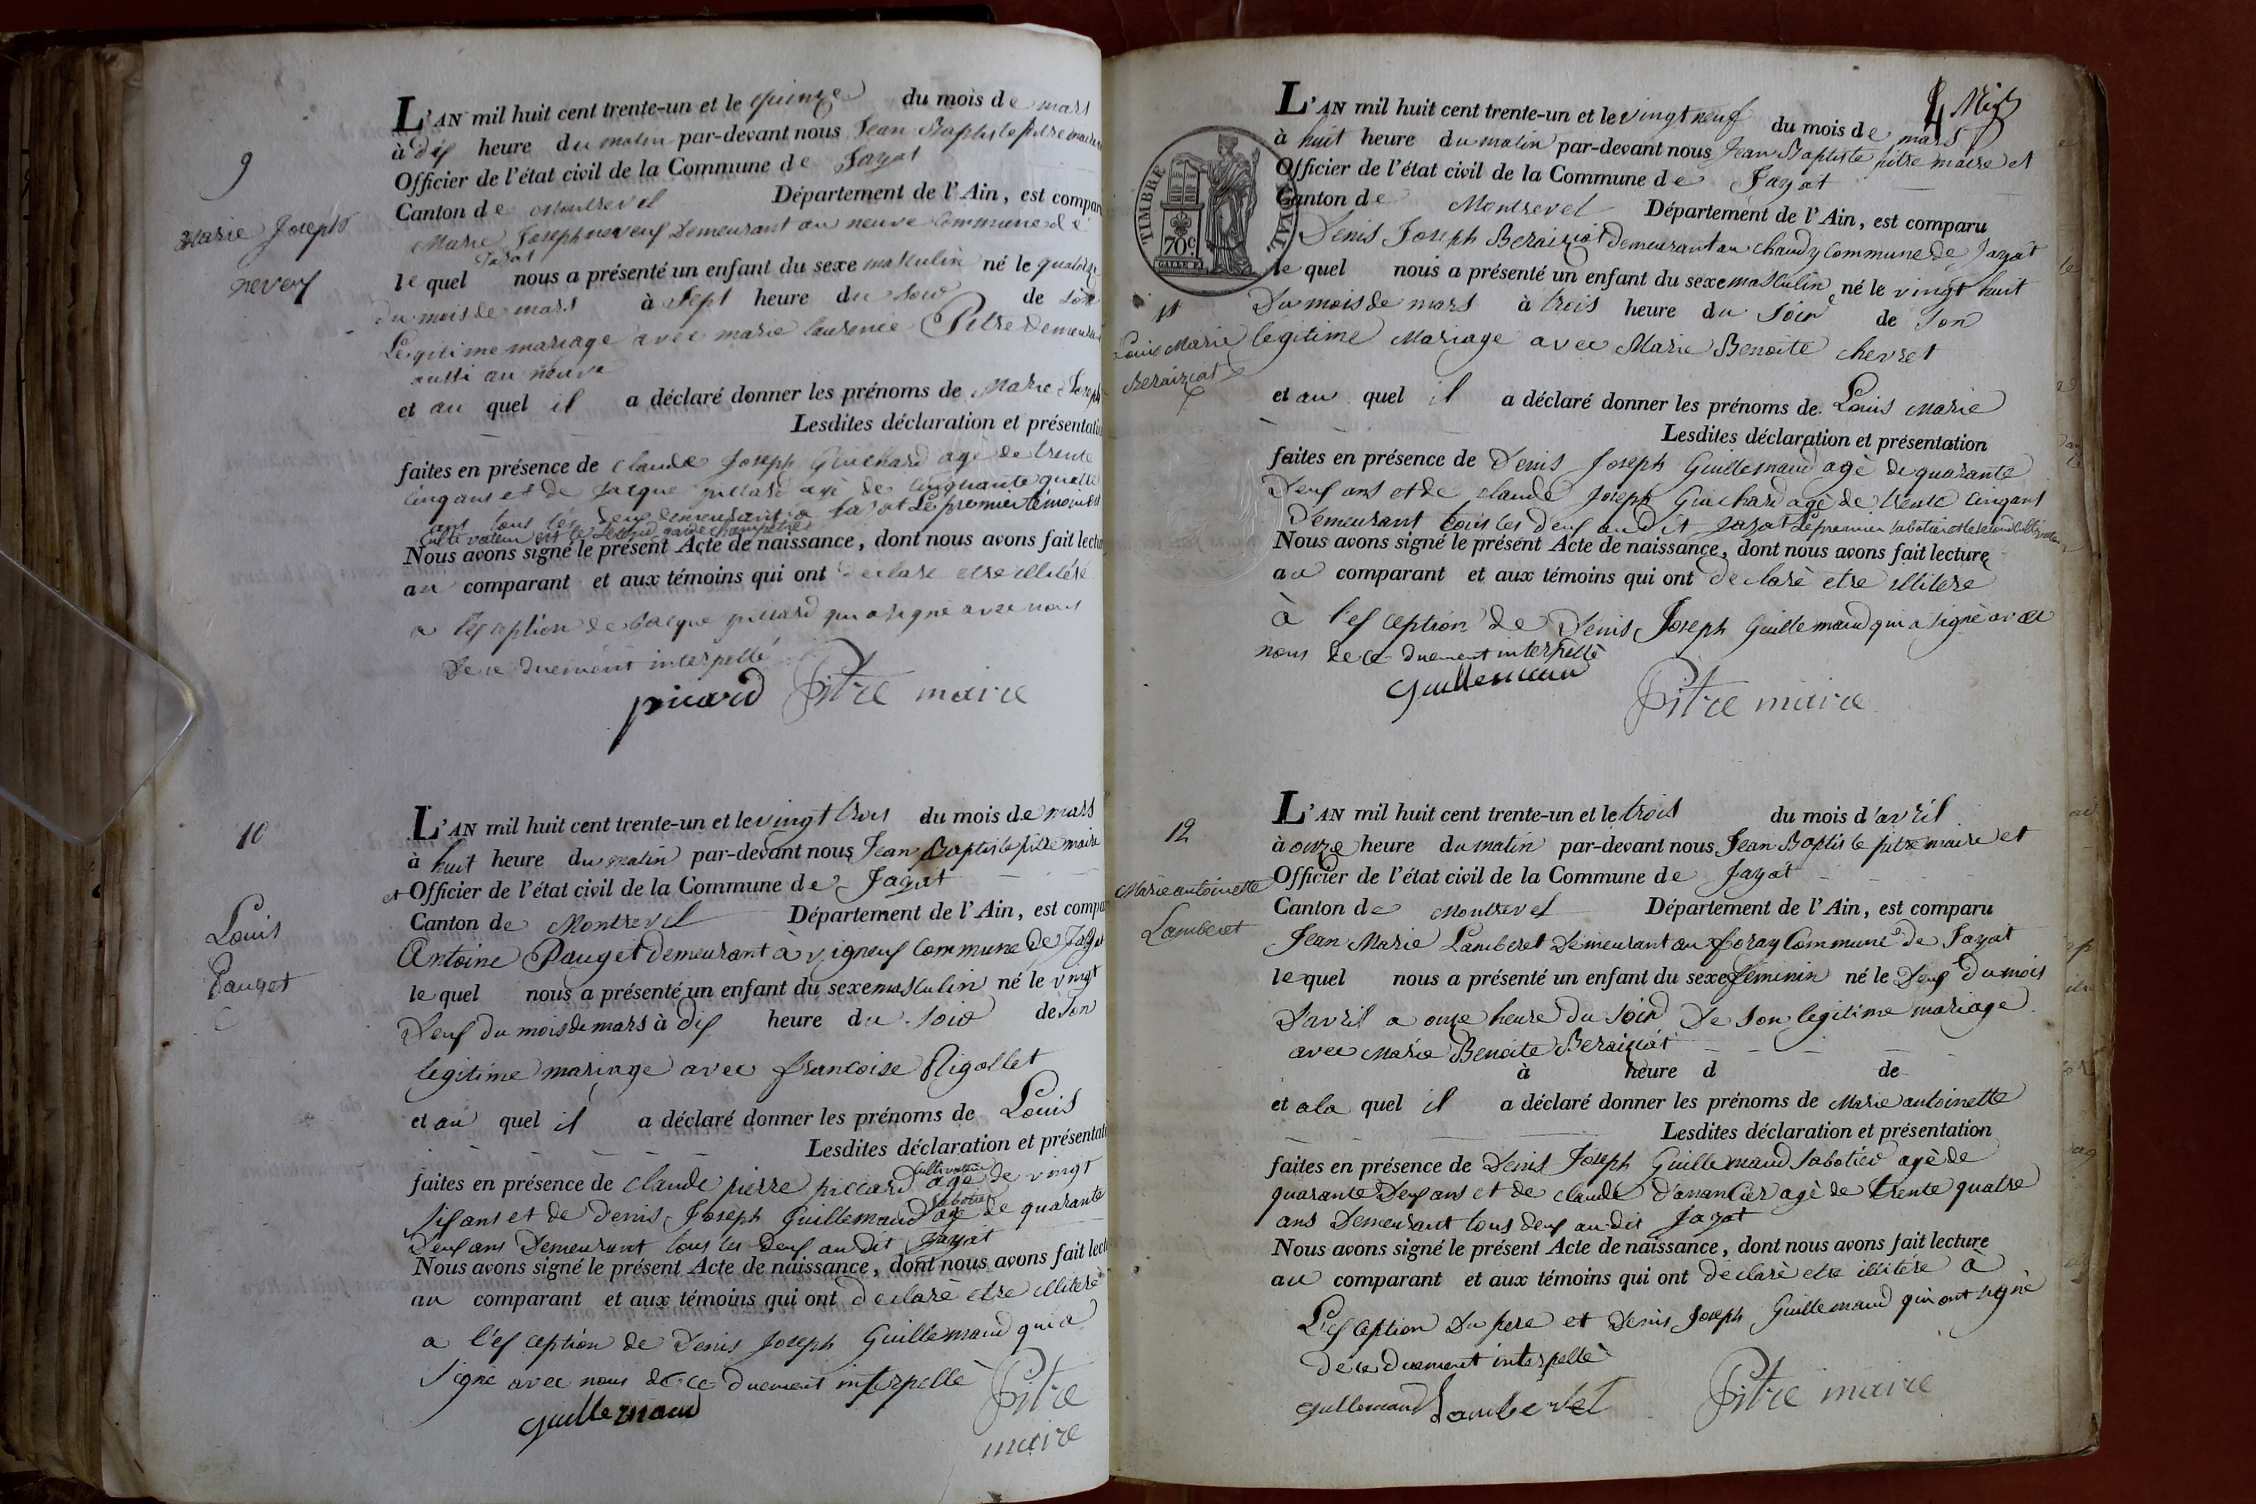 9
Marie Joseph
neveux
L'AN mil huit cent trente-un et le quinze du mois de mars
à dix heure du matin par-devant nous Jean Baptiste pitre maire
Officier de l'état civil de la Commune de Jayat
Canton de Montrevel Département de l'Ain, est compar
Marie Joseph neveux Demeurant au neuve Commune de
Jayat
le quel nous a présenté un enfant du sexe masculin né le quatorze
du mois de mars à sept heure du soir de son
Legitime mariage avec marie laurence Pitre demeurant
aussi au neuve
et au quel il a déclaré donner les prénoms de Marie Joseph
Lesdites déclaration et présentati
faites en présence de claude Joseph Guichard agé de trente
cinq ans et de Jacque pillard agé de cinquante quatre
ans tous les deux demeurant a Jayat Le premier témoin est
cultivateur et le second garde champetre
Nous avons signé le présent Acte de naissance, dont nous avons fait lectu
au comparant et aux témoins qui ont declaré etre illitéré
a l'exception de Jacque pillard qui a signé avec nous
De ce duement interpellé
picard Pitre maire
10
Louis
Pauget
L'AN mil huit cent trente-un et le vingt trois du mois de mars
à huit heure du matin par-devant nous Jean Baptiste pitre maire
et Officier de l'état civil de la Commune de Jayat
Canton de Montrevel Département de l'Ain, est compa
Antoine Pauget demeurant à vigneux Commune De Jayat
le quel nous a présenté un enfant du sexe masculin né le vingt
Deux du mois de mars à dix heure du soir de son
legitime mariage avec francoise Rigollet
et au quel il a déclaré donner les prénoms de Louis
Lesdites déclaration et présentati
cultivateur
faites en présence de claude pierre piccard agé de vingt
sabotier
six ans et de Denis Joseph Guillemaud agé de quarante
Deux ans Demeurant tous les Deux au dit Jayat
Nous avons signé le présent Acte de naissance, dont nous avons fait lectu
au comparant et aux témoins qui ont declaré etre illiteré
a l'exception de Denis Joseph Guillemaud qui a
signé avec nous de ce duement interpellé
guillemaud Pitre
maire
4
L'AN mil huit cent trente-un et le vingt neuf du mois de mars
à huit heure du matin par-devant nous Jean Baptiste pitre maire et
Officier de l'état civil de la Commune de Jayat
Canton de Montrevel Département de l'Ain, est comparu
TIMBRE ROYAL
70c
Denis Joseph Beraiziat demeurant au chaudy Commune de Jayat
le quel nous a présenté un enfant du sexe masculin né le vingt huit
11
Louis Marie
Beraiziat
Du mois de mars à trois heure du soir de son
legitime Mariage avec Marie Benoite chevret
et au quel il a déclaré donner les prénoms de Louis Marie
Lesdites déclaration et présentation
faites en présence de Denis Joseph Guillemaud agé de quarante
Deux ans et de claude Joseph Guichard agé de trente cinq ans
Demeurant tous les deux au dit Jayat Le premier sabotier et le second cultivateur
Nous avons signé le présent Acte de naissance, dont nous avons fait lecture
au comparant et aux témoins qui ont declaré etre illitere
à l'exception de Denis Joseph Guillemaud qui a signé avec
nous de ce duement interpellé
guillemaud
Pitre maire
12
Marie antoinette
Lamberet
L'AN mil huit cent trente-un et le trois du mois d'avril
à onze heure du matin par-devant nous Jean Baptiste pitre maire et
Officier de l'état civil de la Commune de Jayat
Canton de Montrevel Département de l'Ain, est comparu
Jean Marie Lamberet Demeurant au foray Commune de Jayat
le quel nous a présenté un enfant du sexe feminin né le Deux du mois
D'avril a onze heure du soir De son legitime mariage
avec Marie Benoite Beraiziat
à heure d de
et a la quel il a déclaré donner les prénoms de Marie antoinette
Lesdites déclaration et présentation
faites en présence de Denis Joseph Guillemaud sabotier agé de
quarante Deux ans et de claude Danancier agé de trente quatre
ans Demeurant tous deux au dit Jayat
Nous avons signé le présent Acte de naissance, dont nous avons fait lecture
au comparant et aux témoins qui ont declaré etre illitere à
L'exception Du pere et Denis Joseph Guillemaud qui ont signé
de ce duement interpellé
guillemaud Lamberet Pitre maire